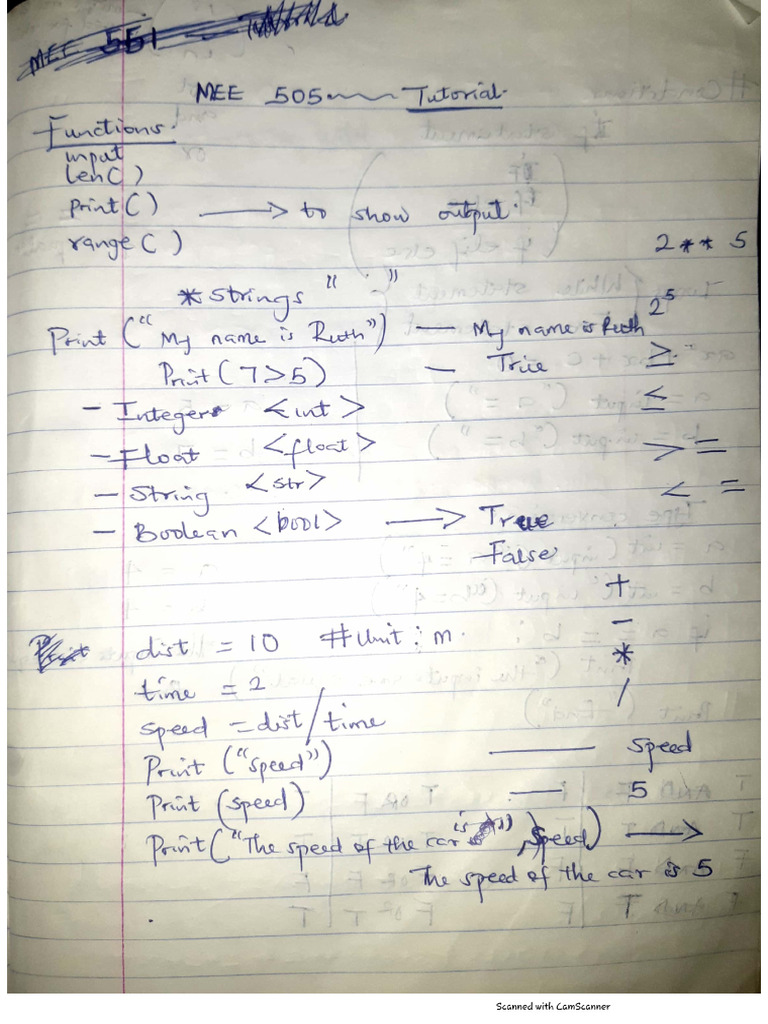 MEE 551
MEE 505 Tutorial.
Functions.
input
len( )
Print( ) → to show output.
range( )
2 ** 5
* Strings " "
2⁵
Print ("My name is Ruth") — My name is Ruth
Print (7>5) — True
≥
- Integer <int>
≤
- Float <float>
> =
- String <str>
< =
- Boolean <bool> → True
False
+
-
dist = 10 # Unit : m.
*
time = 2
/
speed = dist / time
Print ("speed") — speed
Print (speed) — 5
Print("The speed of the car is", speed) →
The speed of the car is 5
Scanned with CamScanner